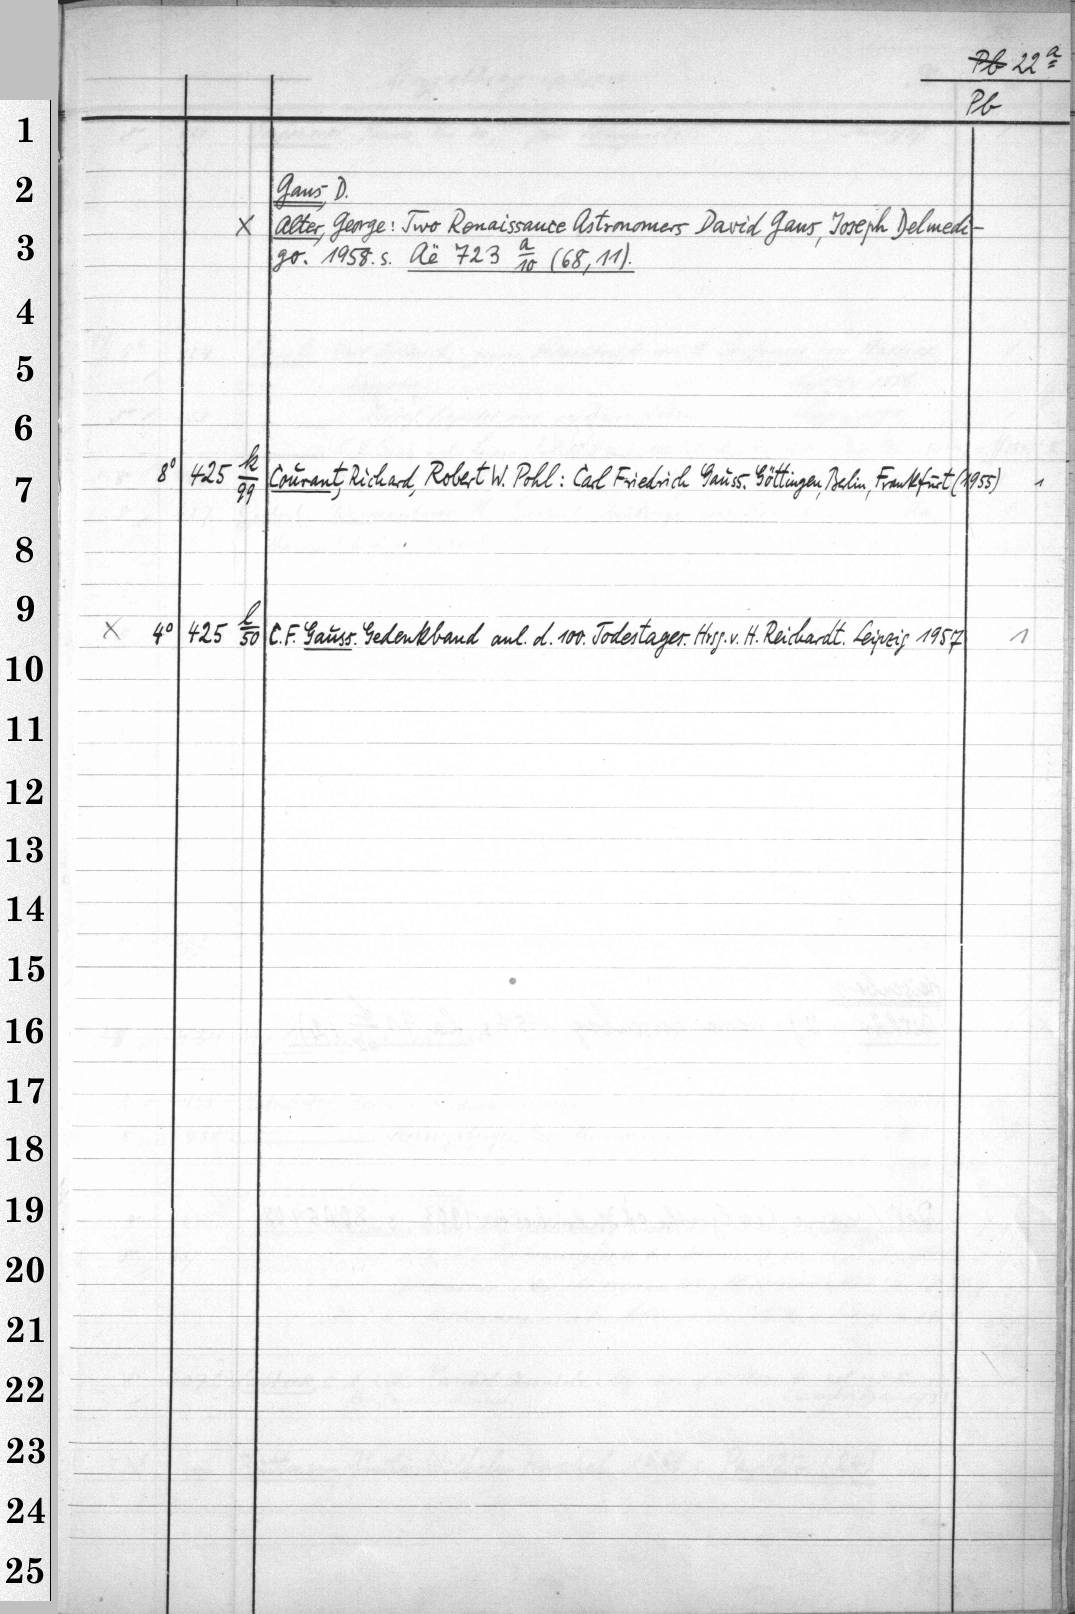 Pb 22 a
Pb
1
2
Gans, D.
3
X Alter, George: Two Renaissance Astronomers David Gans, Joseph Delmedi-
go. 1958. s. Aë 723 a/10 (68, 11).
4
5
6
7
8° 425 k/99 Courant, Richard, Robert W. Pohl: Carl Friedrich Gauss. Göttingen, Berlin, Frankfurt (1955) 1
8
9
X 4° 425 l/50 C. F. Gauss. Gedenkband anl. d. 100. Todestages. Hrsg. v. H. Reichardt. Leipzig 1957 1
10
11
12
13
14
15
16
17
18
19
20
21
22
23
24
25